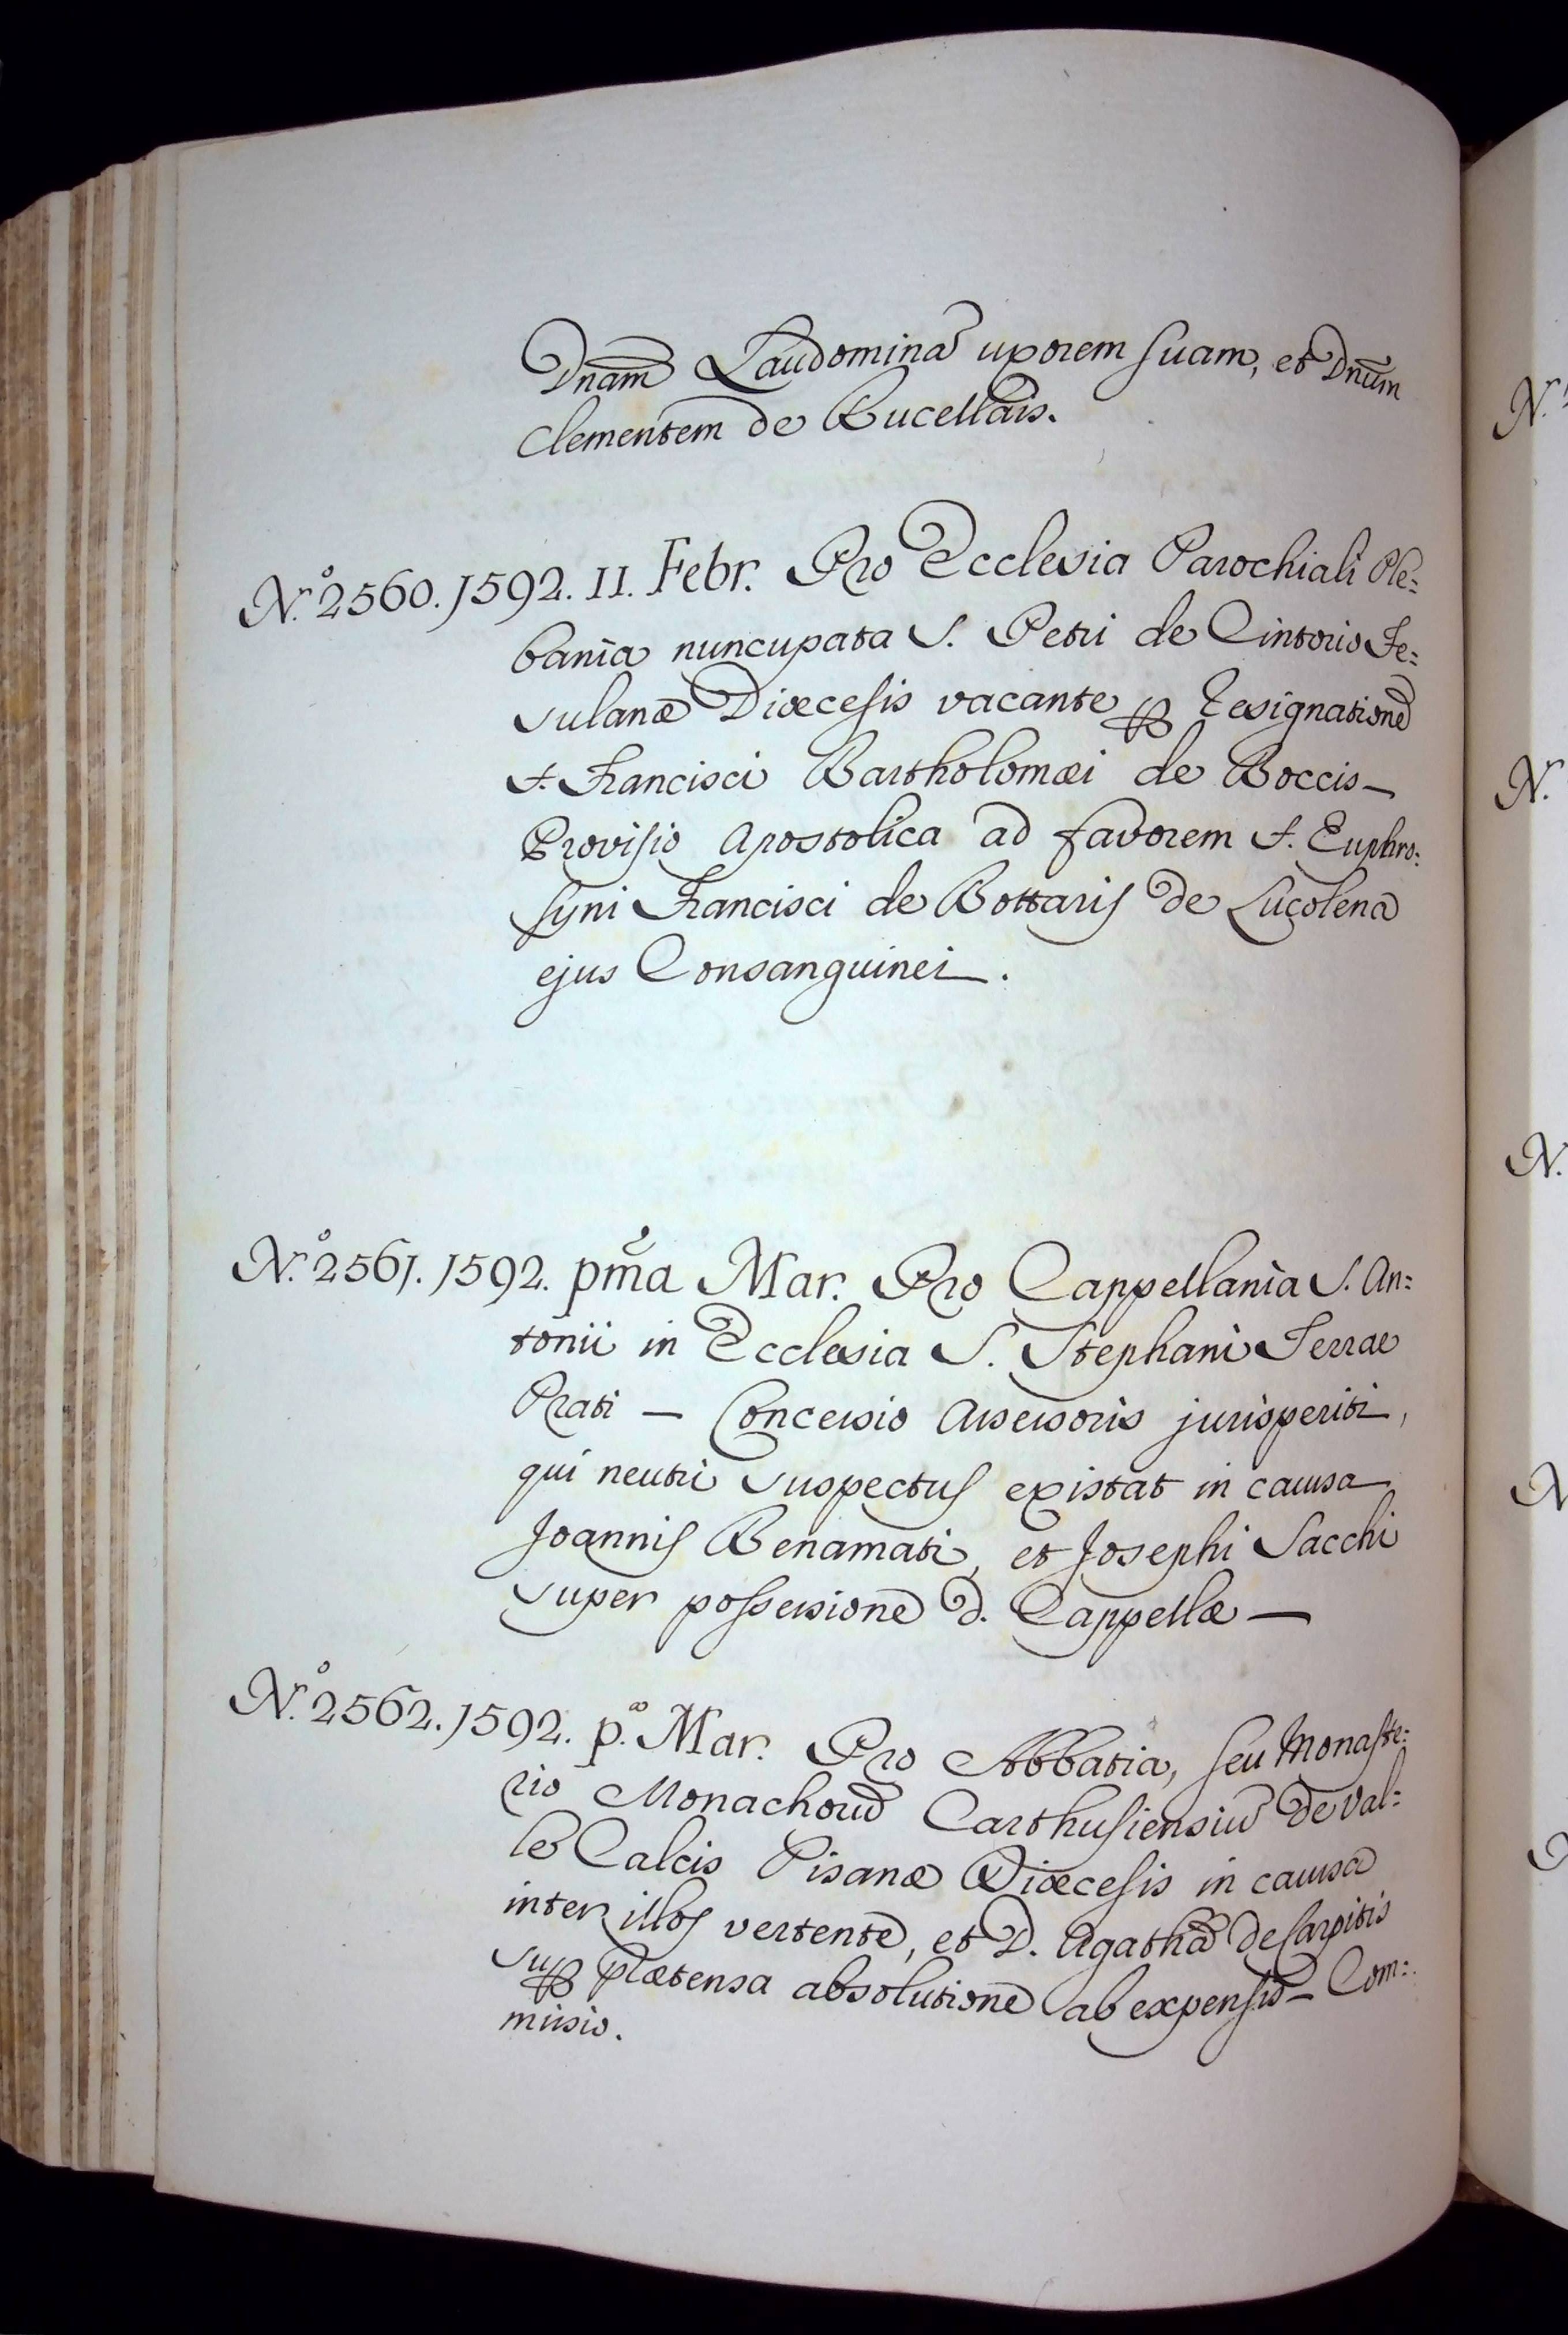 Dnam Laudomina uxorem suam, et Dnum
Clementem de Rucellais.
N.º 2560. 1592. 11. Febr. Pro Ecclesia Parochiali Ple=
bania nuncupata S. Petri de Cintorio Fe=
sulanæ Diœcesis vacante ꝑ resignatione
F. Francisci Bartholomæi de Boccis —
Provisio Apostolica ad favorem F. Euphro=
syni Francisci de Bottaris de Lucolena
ejus Consanguinei.
N.º 2561. 1592. pma Mar. Pro Cappellania S. An=
tonii in Ecclesia S. Stephani Terrae
Prati — Concessio Assessoris jurisperiti,
qui neutri suspectus existat in causa
Joannis Benamati, et Josephi Sacchi
super possessione d. Cappellæ —
N.º 2562. 1592. p.ª Mar. Pro Abbatia, seu Monaste=
rio Monachorū Carthusiensiū de Val=
le Calcis Pisanæ Diœcesis in causa
inter illos vertente, et D. Agathā de
suꝑ prætensa absolutione ab expensis — Com=
missio.
N.
N.
N.
N